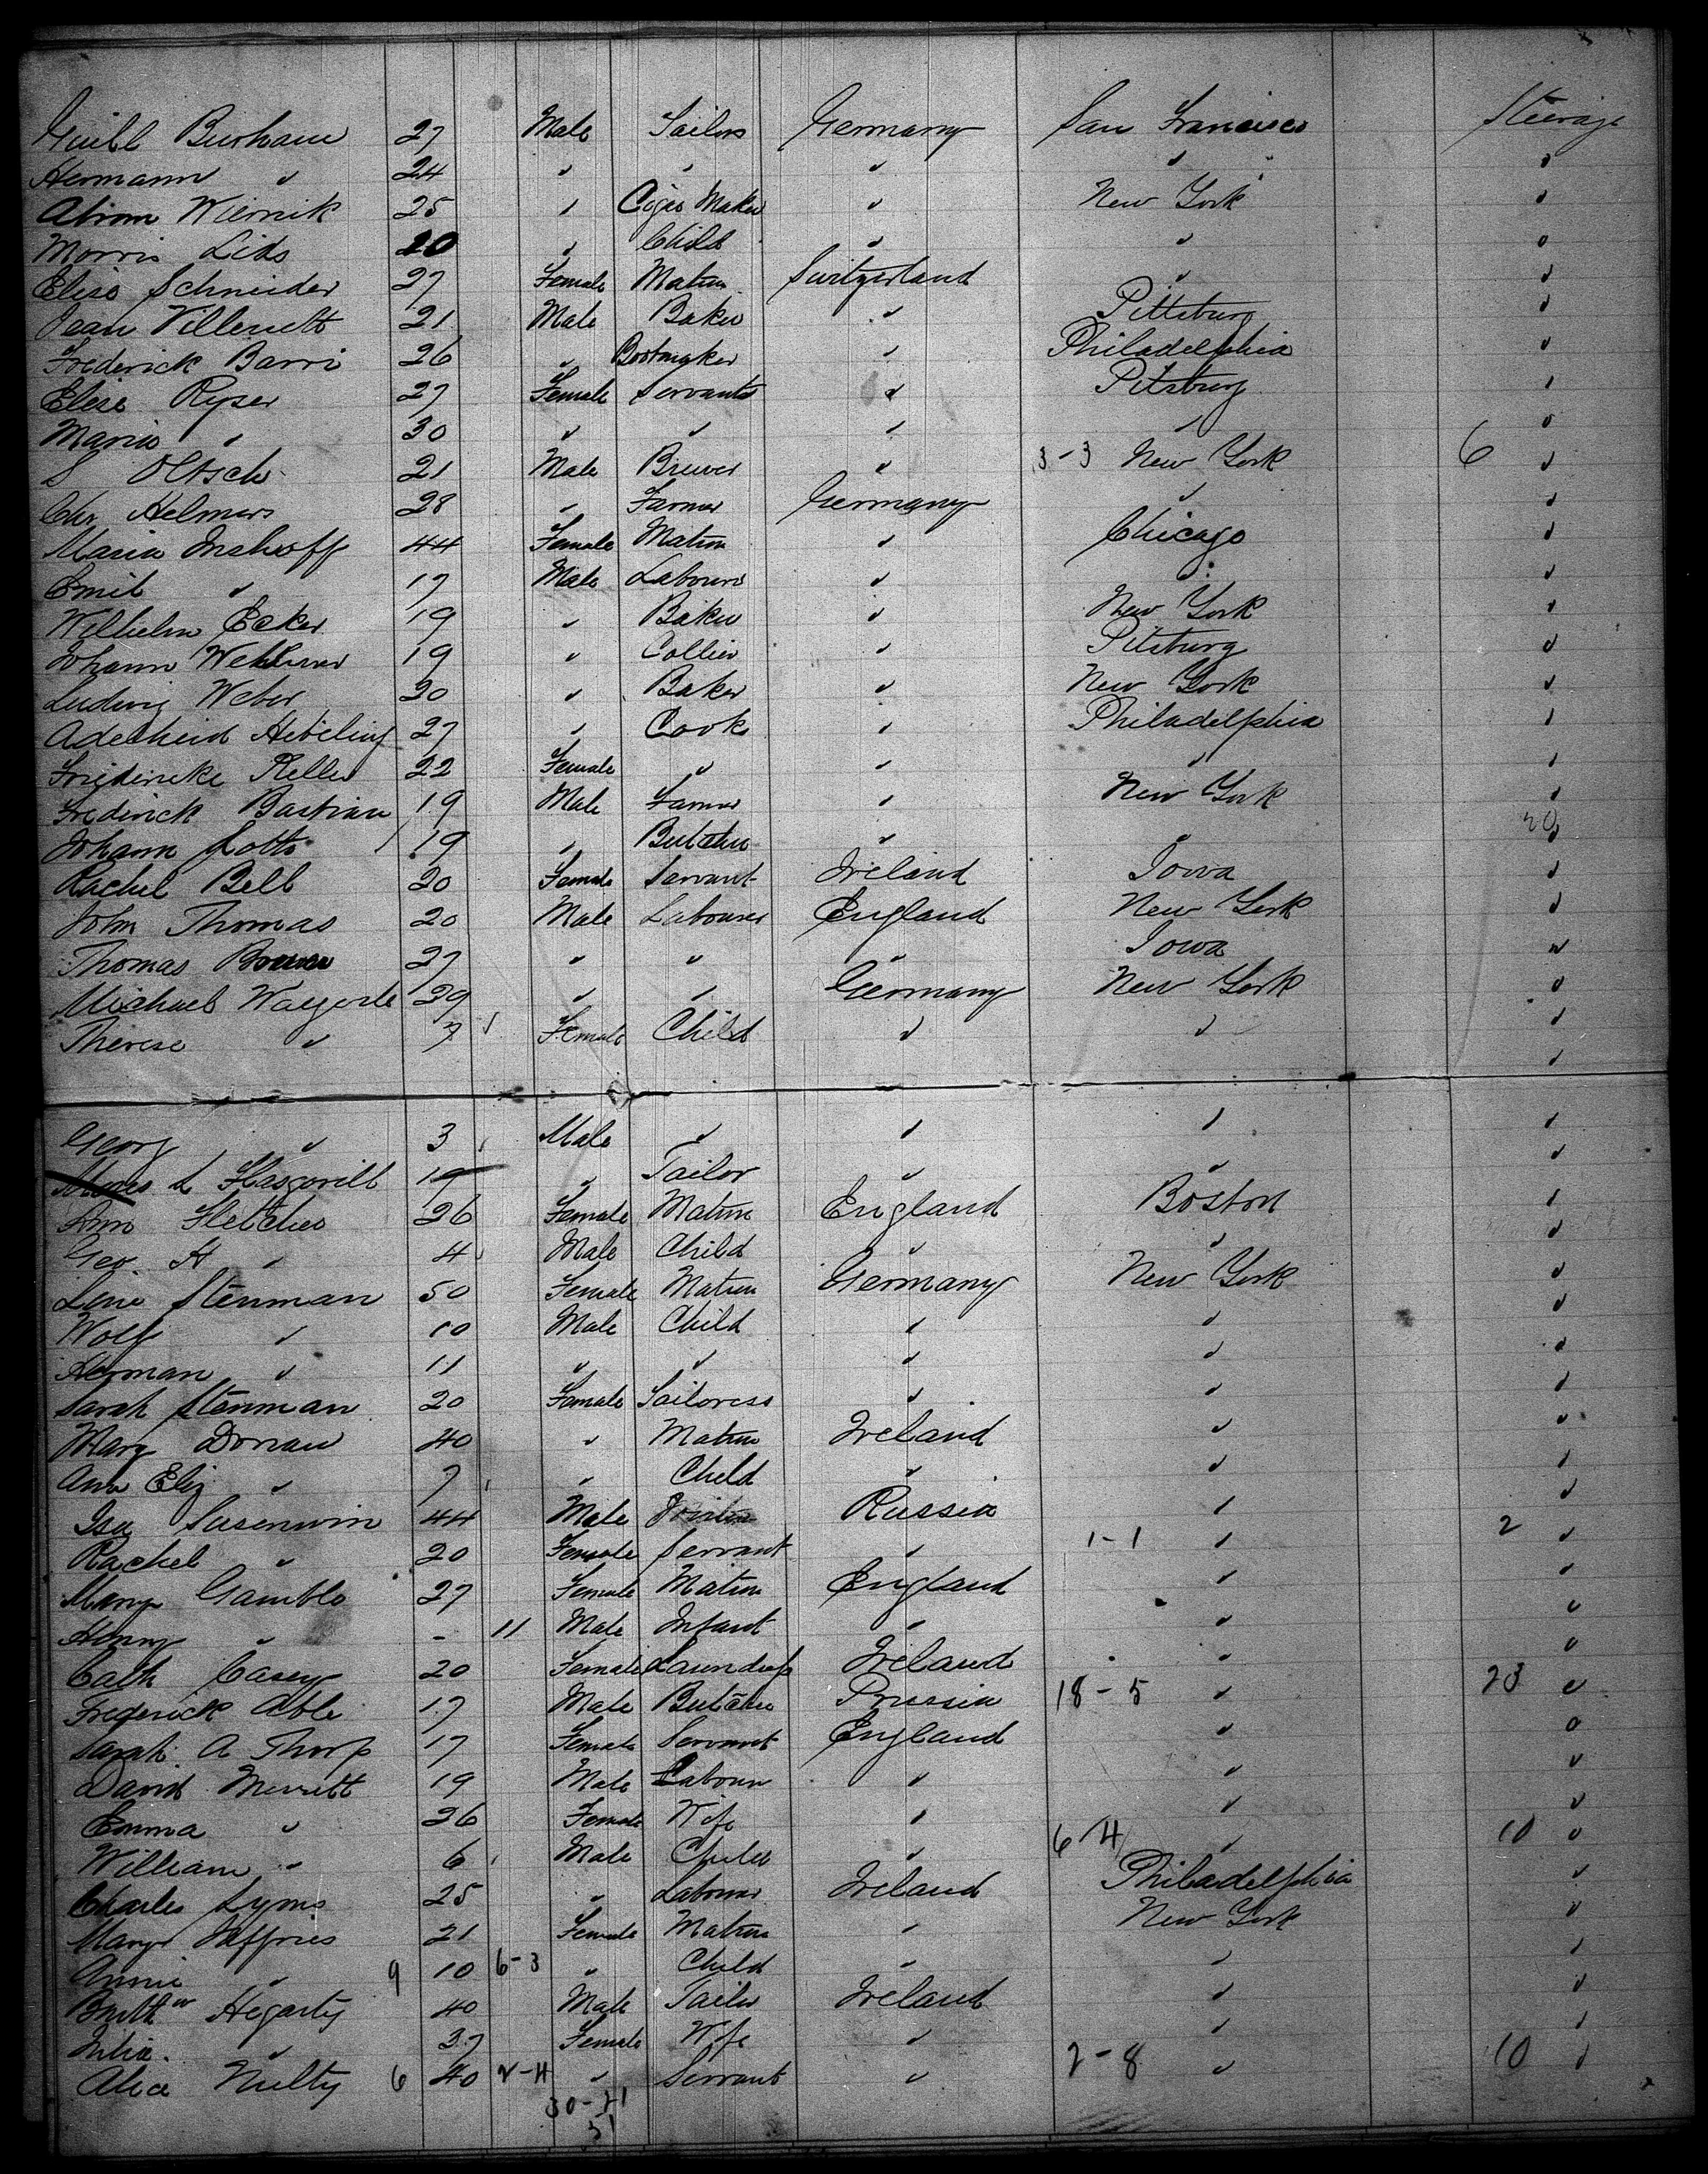 Burhaus 27 Male Sailors Germany San Francisco Steerage
Hermann " 24 " " " " "
Abram Wiernik 25 " Cigar Maker " New York "
Morris Lids 20 " Child " " "
Elise Schneider 27 Female Matron Switzerland " "
Jean 21 Male Baker " Pittsburg "
Frederick Barri 26 " Bootmaker " Philadelphia "
Elise Ryser 27 Female Servants " Pitsburg "
Maria " 30 " " " " "
S 21 Male Brewer " 3-3 New York 6 "
Chr Helmers 28 " Farmer Germany " "
Maria 44 Female Matron " Chicago "
Emil " 17 Male Labourer " " "
Wilhelm Ecker 19 " Baker " New York "
Johann 19 " Collier " Pitsburg "
Ludwig Weber 20 " Baker " New York "
Adelheid Hebeling 27 " Cook " Philadelphia "
Keller 22 Female " " " "
Frederick Bastian 19 Male Farmer " New York "
Johann Lotts 19 " Butcher " 20 "
Rachel Bell 20 Female Servant Ireland Iowa "
John Thomas 20 Male Labourer England New York "
Thomas 27 " " " Iowa "
Michael 29 " " Germany New York "
Therese " 7 Female Child " " "
Georg " 3 Male " " " "
L 19 " Tailor " " "
Ann Fletcher 26 Female Matron England Boston "
Geo. H " 4 Male Child " " "
Lene Stenman 50 Female Matron Germany New York "
Wolf " 10 Male Child " " "
Herman " 11 " " " " "
Sarah Stenman 20 Female Tailoress " " "
Mary Donau 40 " Matron Ireland " "
Ann Eliz " 7 " Child " " "
Isa 44 Male Russia " "
Rachel " 20 Female Servant " 1-1 " 2 "
Mary Gamble 27 Female Matron England " "
Henry " - 11 Male Infant " " "
Cath Casey 20 Female Laundress Ireland " "
Frederick Able 17 Male Butcher Prussia 18-5 " 23 "
Sarah A Thorp 17 Female Servant England " "
David Merritt 19 Male Labour " " "
Emma " 26 Female Wife " " "
William " 6 Male Child " 6-4 " 10 "
Charles Lyons 25 " Labourer Ireland Philadelphia "
Mary Jeffries 21 Female Matron " New York "
Annie " 9 10 6-3 " Child " " "
Hegarty 40 Male Tailor Ireland " "
Julia " 37 Female Wife " " "
Alice Nulty 6 40 2-4 " Servant " 2-8 " 10 "
30-21
51